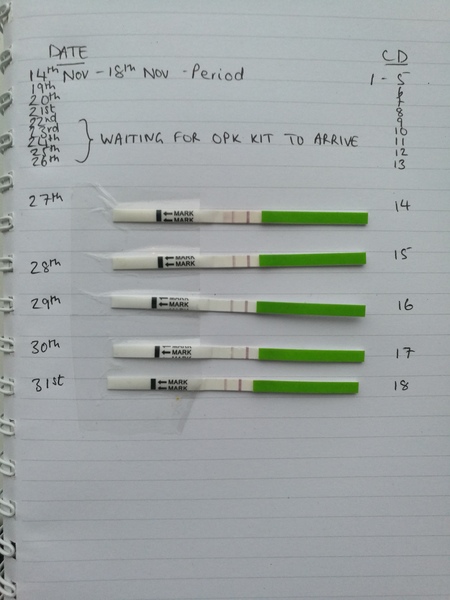 DATE CD
14th Nov - 18th Nov - Period 1 - 5
19th 6
20th 7
21st 8
22nd 9
23rd 10
24th WAITING FOR OPK KIT TO ARRIVE 11
25th 12
26th 13
27th ← MARK 14
← MARK
28th ← MARK 15
← MARK
29th ← MARK 16
← MARK
30th ← MARK 17
← MARK
31st ← MARK 18
← MARK